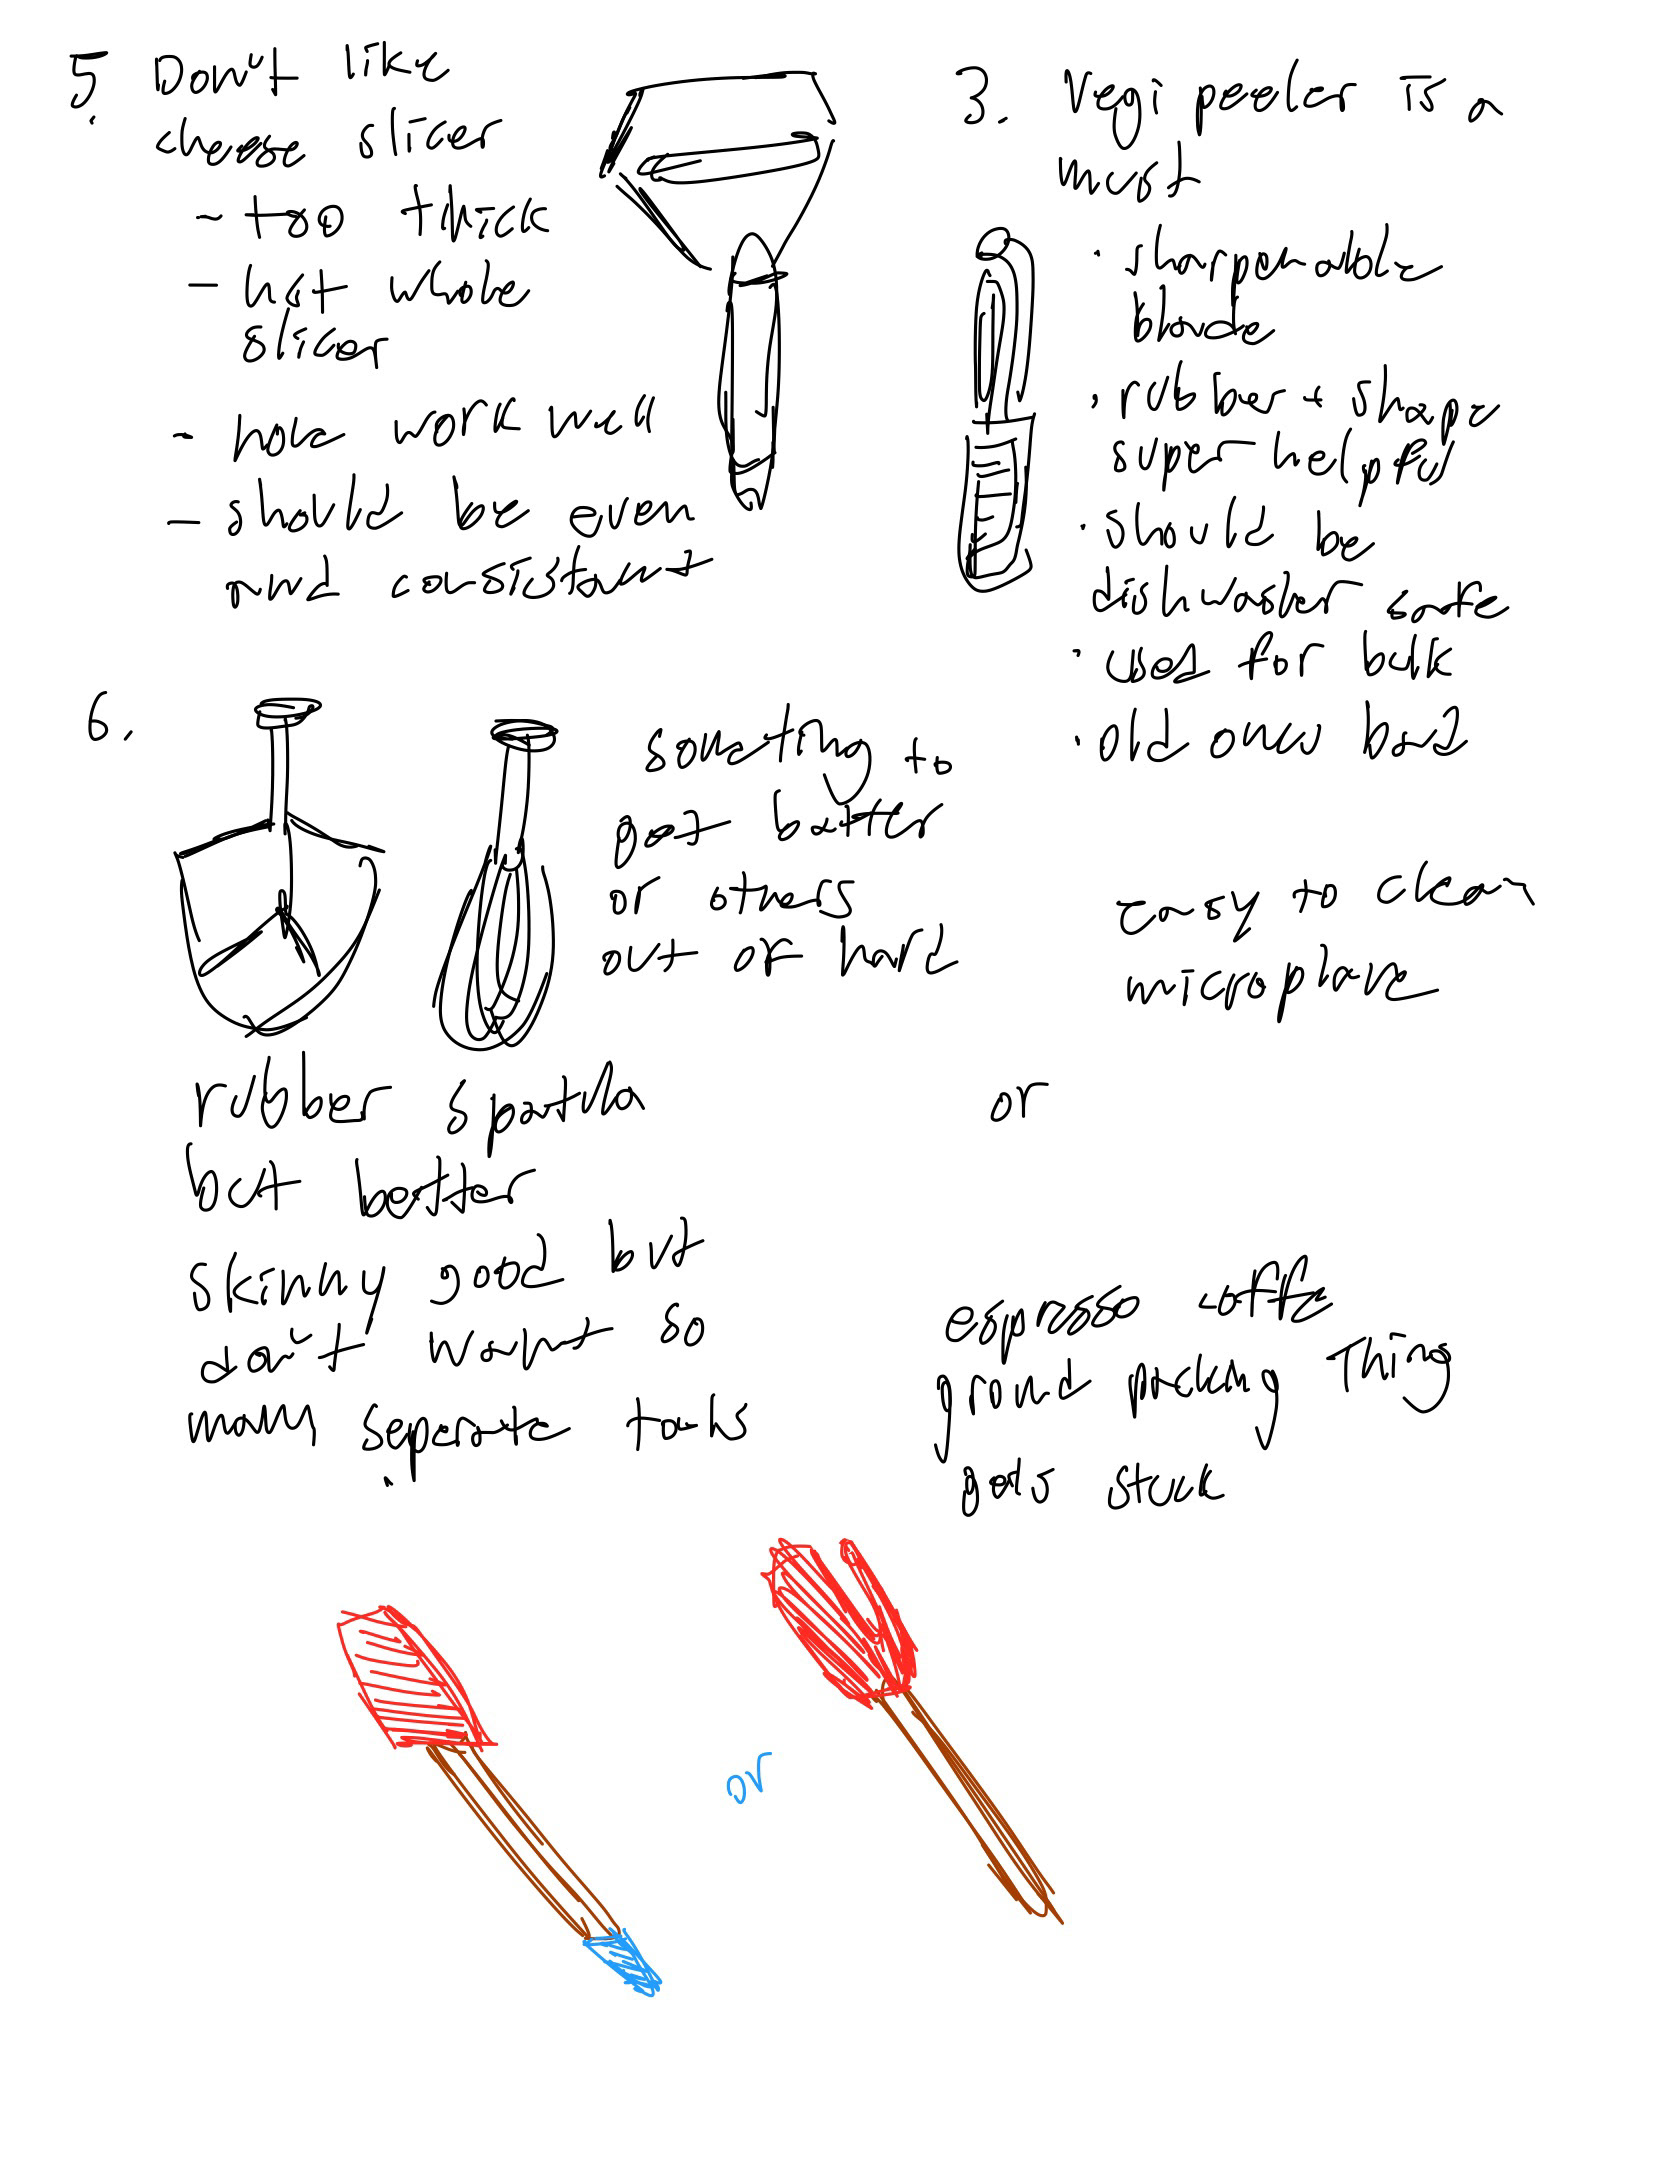 5. Don't like
cheese slicer
- too thick
- not whole
slicer
- work well
- should be even
and consistant
3. Vegi peeler is a
must
· sharpenable
blade
· rubber + shape
super helpful
· should be
dishwasher safe
· used for bulk
· old ones bad
6.
something to
get batter
or others
out of hard
easy to clean
microplane
rubber spatula
but better
or
skinny good but
don't want so
many separate tools
espresso coffe
ground packing Thing
gets stuck
or